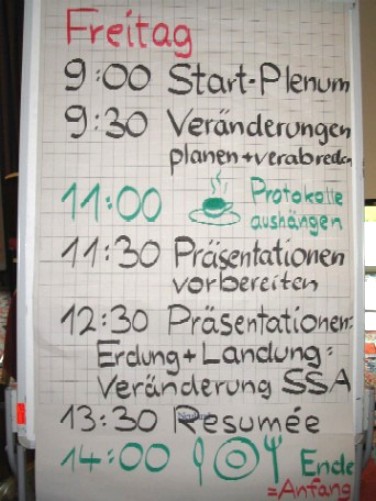 Freitag
9:00 Start-Plenum
9:30 Veränderungen
planen+verabreden
11:00 Protokolle
aushängen
11:30 Präsentationen
vorbereiten
12:30 Präsentationen:
Erdung+Landung:
Veränderung SSA
13:30 Resumée
14:00 Ende
=Anfang